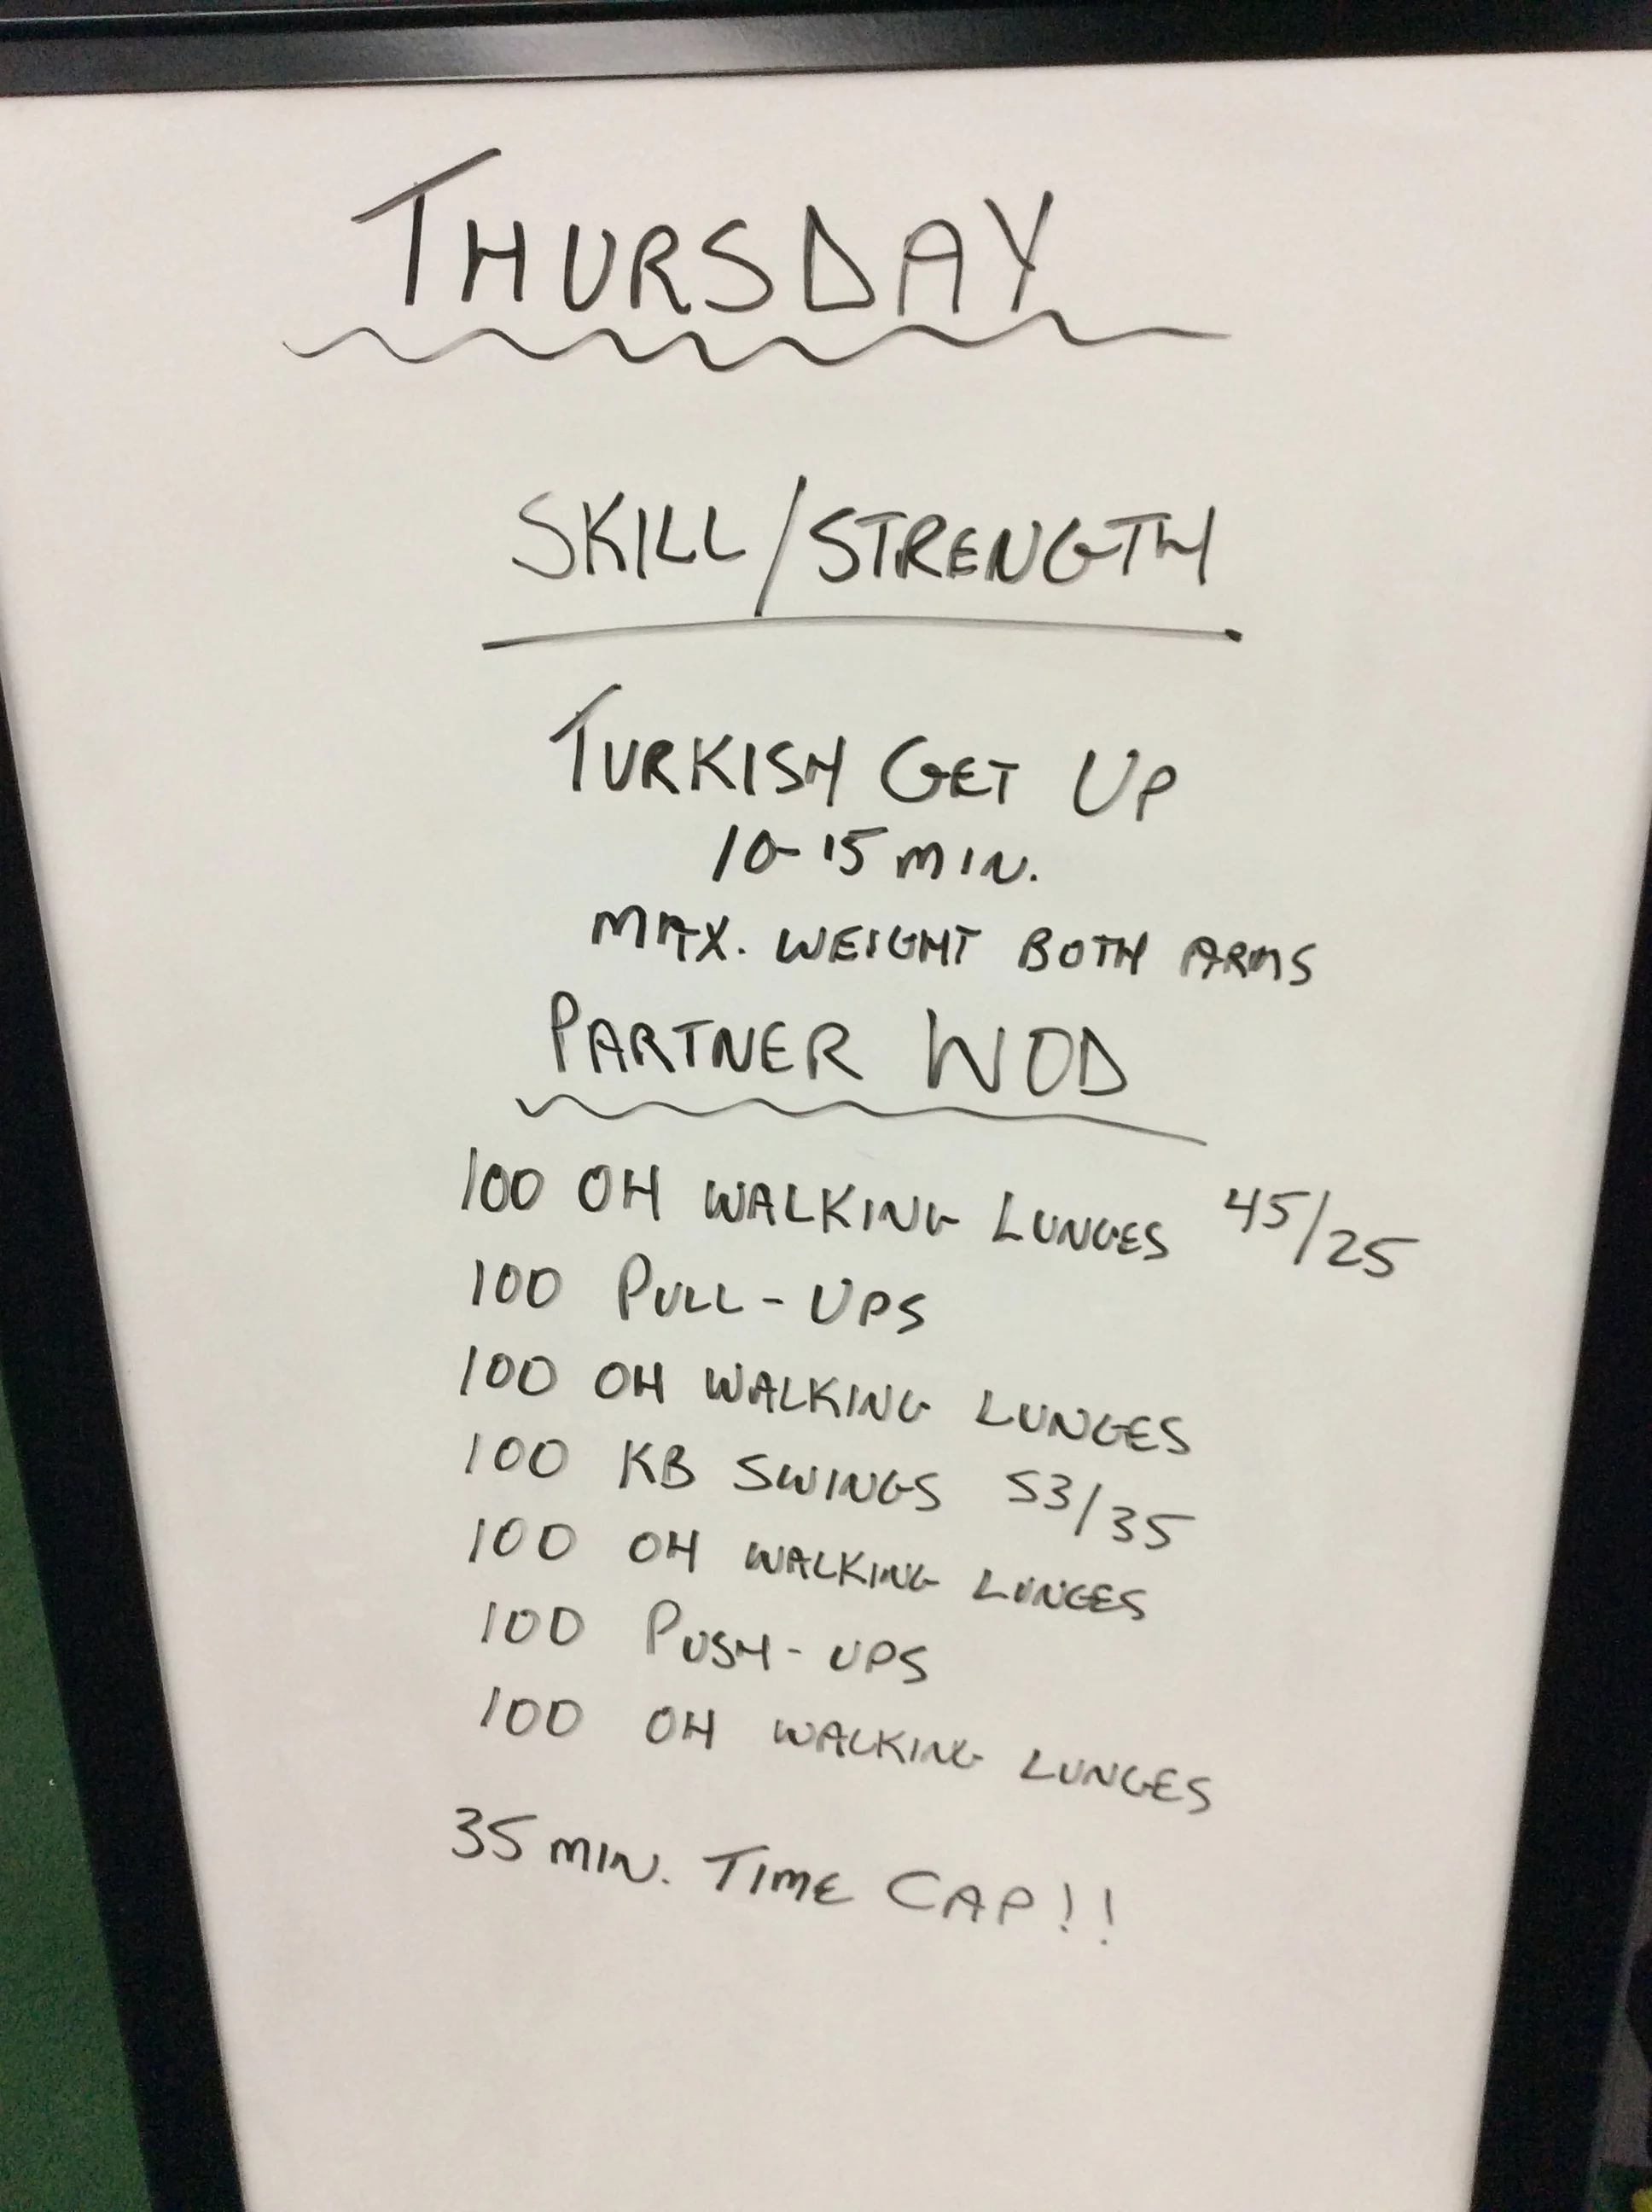 THURSDAY
SKILL/STRENGTH
TURKISH GET UP
10-15 MIN.
MAX. WEIGHT BOTH ARMS
PARTNER WOD
100 OH WALKING LUNGES 45/25
100 PULL-UPS
100 OH WALKING LUNGES
100 KB SWINGS 53/35
100 OH WALKING LUNGES
100 PUSH-UPS
100 OH WALKING LUNGES
35 MIN. TIME CAP!!